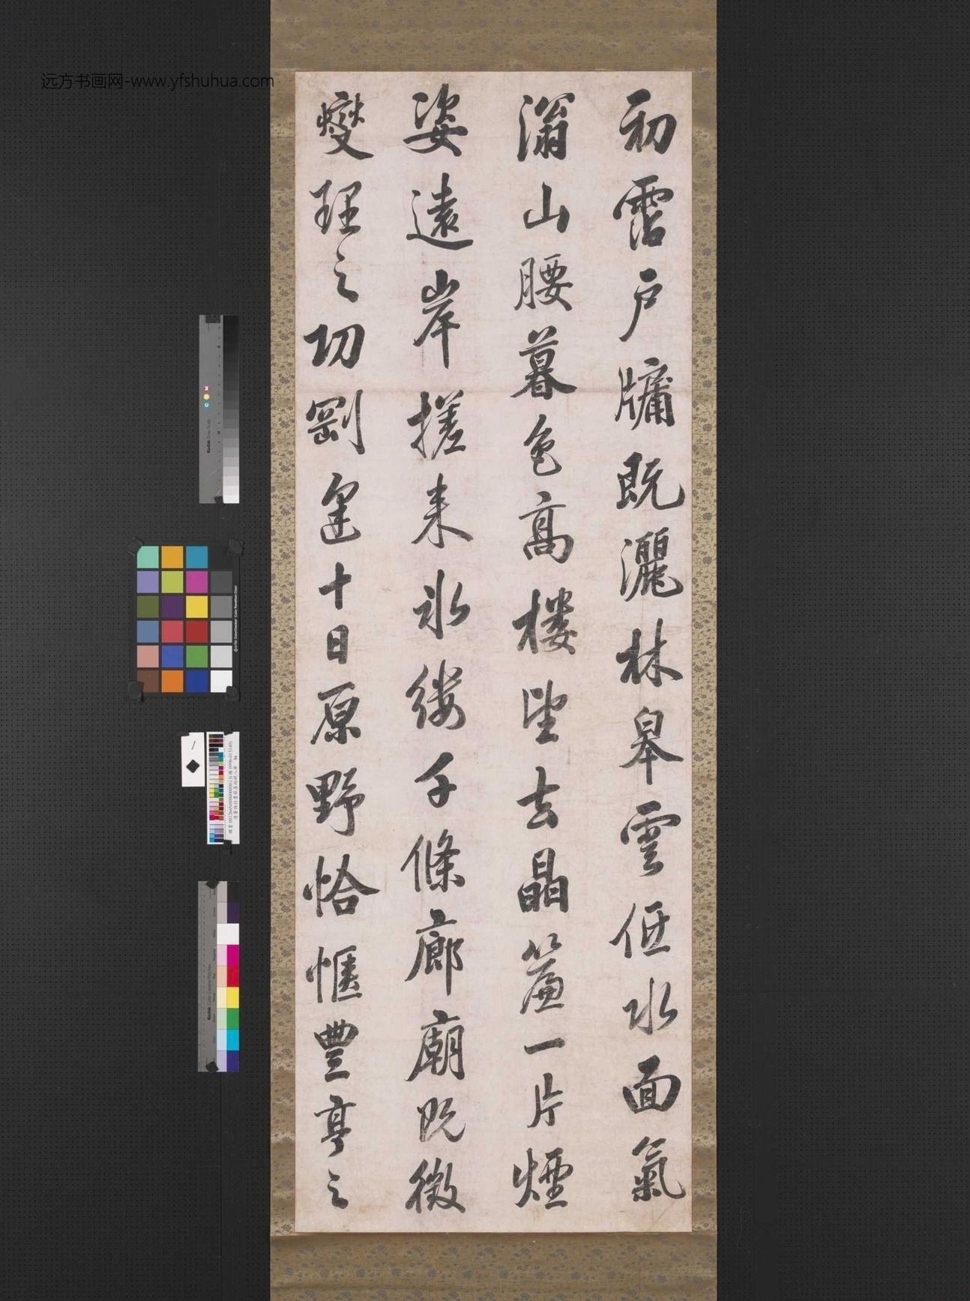 初霑戶牖既灑林皋雲低水面氣
滃山腰暮色高樓望去晶簾一片煙
姿遠岸搓来氷縷千條廊廟既徵
燮理之功劉逢十日原野恰愜豐亨之
远方书画网-www.yfshuhua.com